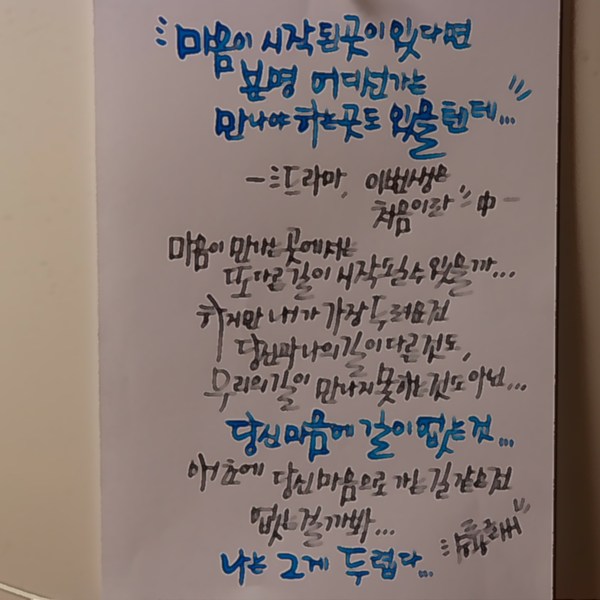 마음이 시작된 곳이 있다면
분명 어디선가는
만나야 하는 곳도 있을텐데...
- 드라마, 이번생은
처음이라 中 -
마음이 만나는 곳에서는
또다른 길이 시작될 수 있을까...
하지만 내가 가장 두려운건
당신과 나의 길이 다른 것도,
우리의 길이 만나지 못하는 것도 아닌...
당신 마음에 길이 없는 것...
애초에 당신 마음으로 가는 길 같은건
없는 걸까봐...
나는 그게 두렵다...